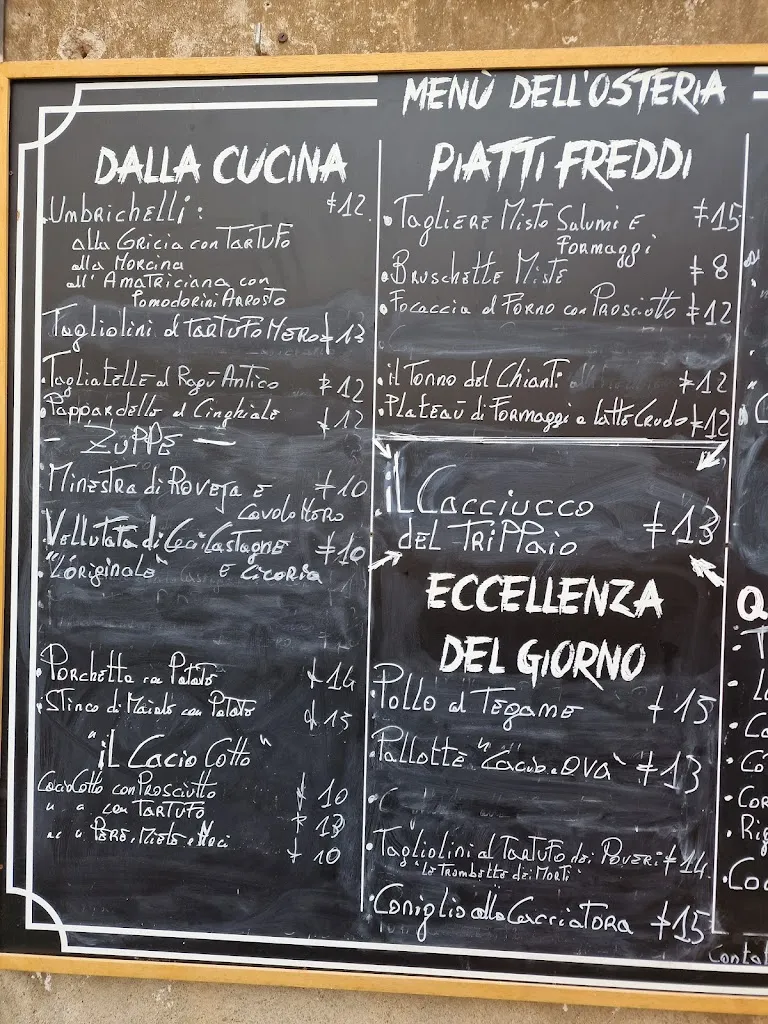 MENÙ DELL'OSTERIA
DALLA CUCINA
Umbrichelli: €12
alla Gricia con TARTUFO
alla Norcina
all'AMATRICIANA con
Pomodorini ARROSTO
Tagliolini al TARTUFO NERO €13
Tagliatelle al Ragù Antico €12
Pappardelle al Cinghiale €12
- ZUPPE -
MINESTRA di ROVEJA E €10
CAVOLO NERO
Vellutata di Ceci Castagne €10
"L'originale" E Cicoria
Porchetta con Patate €14
Stinco di Maiale con Patate €15
"iL Cacio Cotto"
Cacio Cotto con Prosciutto €10
" " con TARTUFO €13
" " PERE, Miele e Noci
€10
PIATTI FREDDI
TAGLIERE Misto Salumi E €15
FORMAGGI
BRUSCHETTE MISTE €8
Focaccia al FORNO con Prosciutto €12
iL Tonno del Chianti €12
PLATEAU di FORMAGGI a latte Crudo €12
iL Cacciucco
DEL TRIPPAIO €13
ECCELLENZA
DEL GIORNO
Pollo al TEGAME €15
PALLOTTE "Cacio e OVA" €13
Tagliolini al TARTUFO dei POVERI €14
"Le TROMBETTE dei MORTI"
Coniglio alla CACCIATORA €15